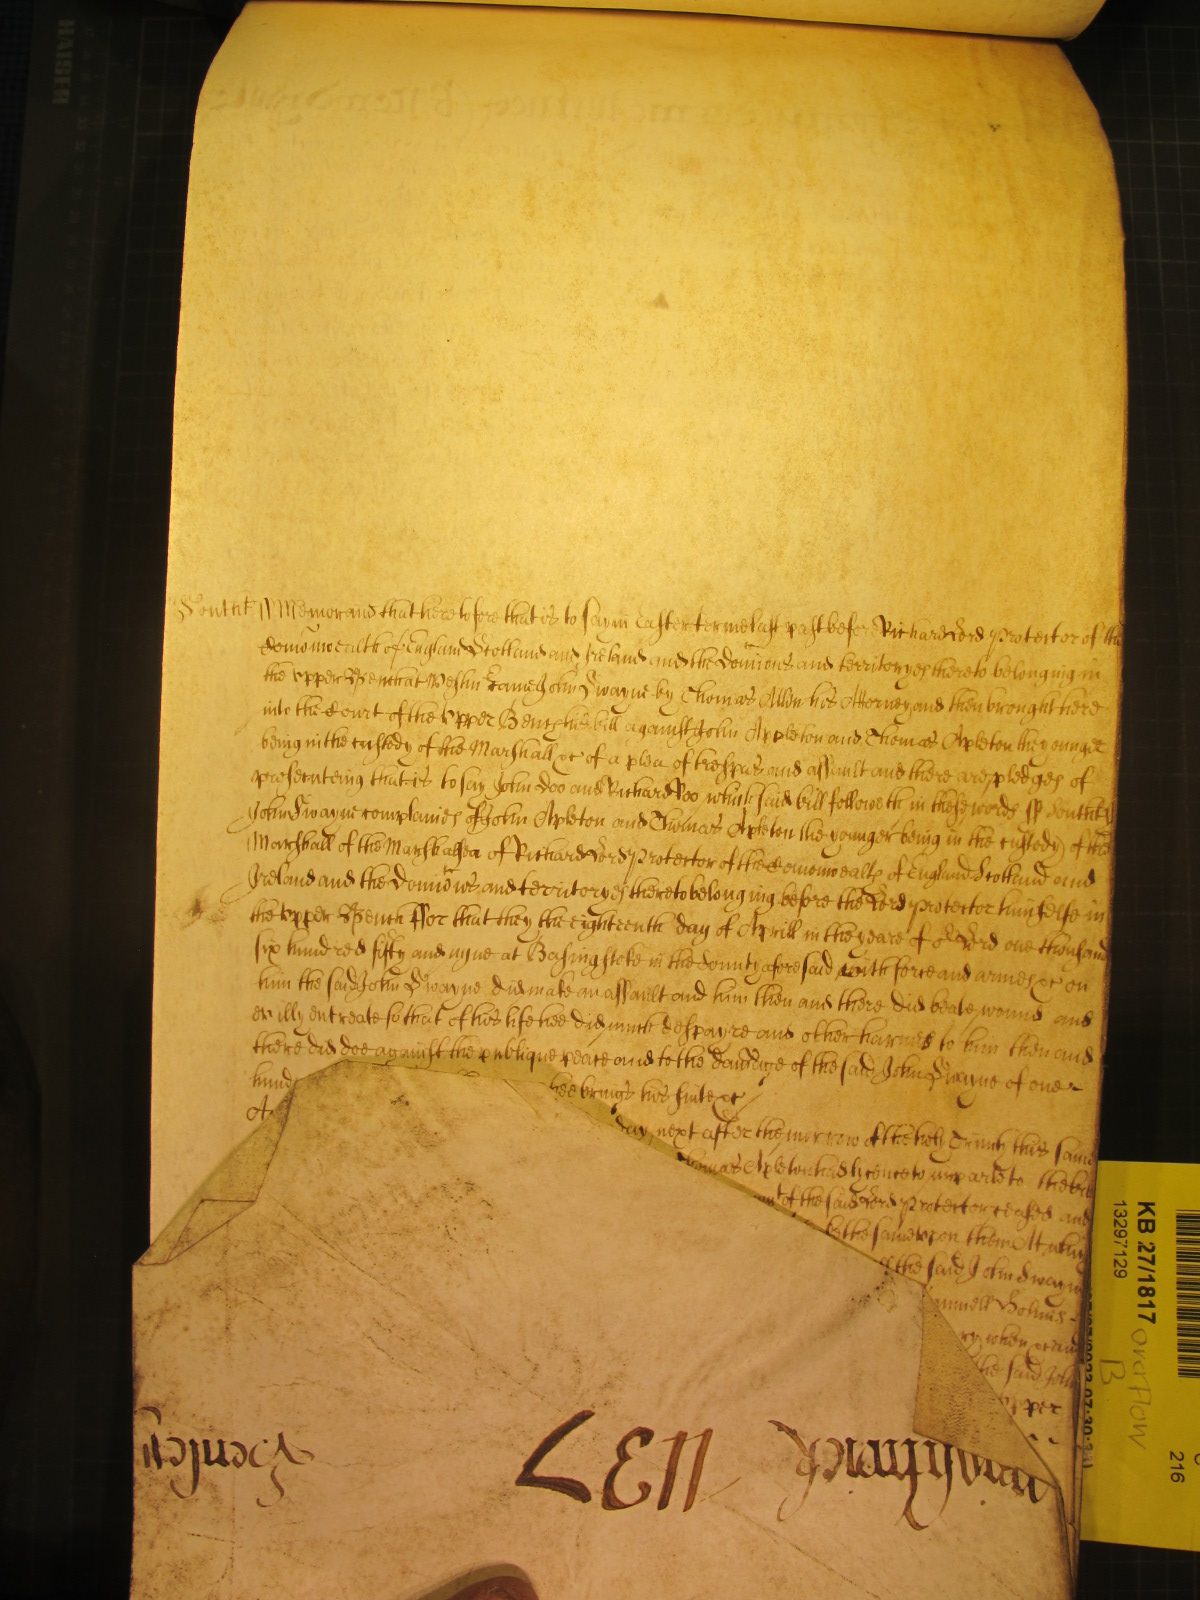 Southt ss Memorand that heretofore that is to say in Easter terme last past before Richard Lord Protector of the
Comonwealth of England Scotland and Ireland and the Dominions and territoryes thereto belonging in
the Upper Bench at Westm Came John Swayne by Thomas Allen his Attorney and then brought here
into the Court of the Upper Bench his bill against John Apleton and Thomas Apleton the younger
being in the custody of the Marshall &c of a plea of trespas and assault and there are pledges of
prosecuting that is to say John Doo and Richard Roo which said bill followeth in these words ss Southt ss
John Swayne complaines of John Apleton and Thomas Apleton the younger being in the custody of the
Marshall of the Marshalsea of Richard Lord Protector of the Comonwealth of England Scotland and
Ireland and the Dominions and territoryes thereto belonging before the Lord Protector himselfe in
the Upper Bench ffor that they the eighteenth day of Aprill in the yeare of o Lord one thousand
six hundred fifty and nyne at Basingstoke in the County aforesaid with force and armes &c on
him the said John Swayne did make an assault and him then and there did beate wound and
evilly entreate so that of his life hee did much despayre and other harmes to him then and
there did doe against the publique peace and to the damage of the said John Swayne of one
hund hee brings his suite &c
At day next after the morrow of the holy Trinity this same
Thomas Apleton had lycence to imparle to the bill
of the said Lord Protector ceased and
the same upon them At which
the said John Swayne
when &c and
the said John
Upper
1137
KB 27/1817
13297129
overflow
B
216